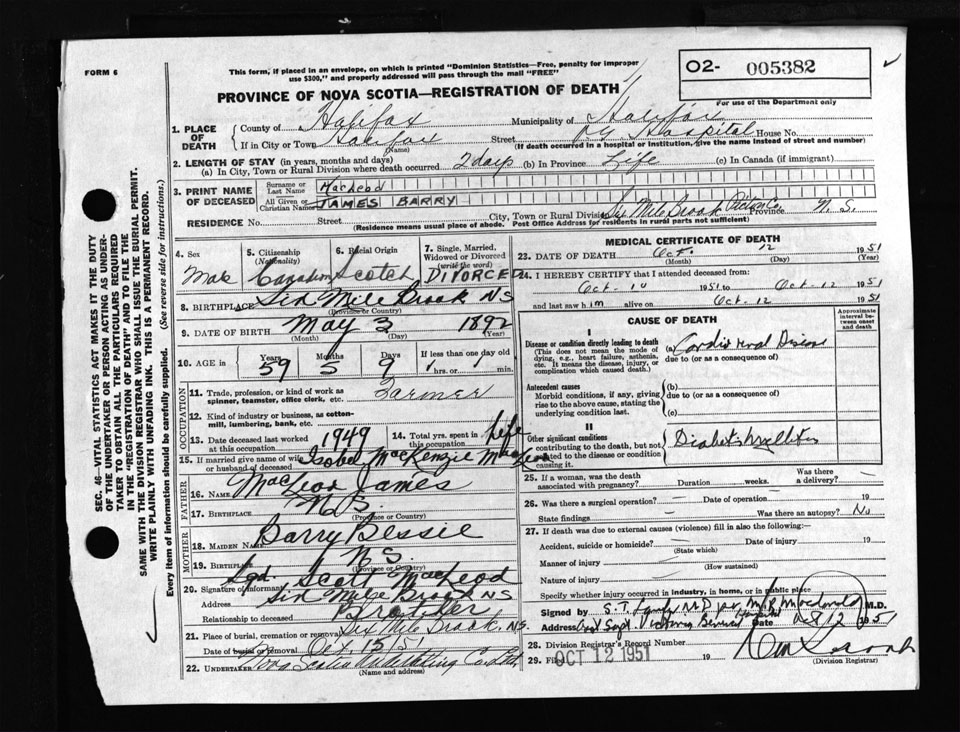 FORM 6
This form, if placed in an envelope, on which is printed "Dominion Statistics—Free, penalty for improper
use $300," and properly addressed will pass through the mail "FREE"
O2- 005382
For use of the Department only
PROVINCE OF NOVA SCOTIA—REGISTRATION OF DEATH
1. PLACE OF DEATH
County of Halifax Municipality of Halifax
If in City or Town Halifax (Name) Street Hospital House No.
(If death occurred in a hospital or institution, give the name instead of street and number)
2. LENGTH OF STAY (in years, months and days)
(a) In City, Town or Rural Division where death occurred 2 days (b) In Province Life (c) In Canada (if immigrant)
3. PRINT NAME OF DECEASED
Surname or Last Name MacLeod
All Given or Christian Names JAMES BARRY
RESIDENCE No. Street City, Town or Rural Division Six Mile Brook Pictou Co. Province N. S.
(Residence means usual place of abode. Post Office Address for residents in rural parts not sufficient)
4. Sex Male
5. Citizenship (Nationality) Canadian
6. Racial Origin Scotch
7. Single, Married, Widowed or Divorced (write the word) DIVORCED
8. BIRTHPLACE Six Mile Brook NS
(Province or Country)
9. DATE OF BIRTH May 3 1892
(Month) (Day) (Year)
10. AGE in Years 59 Months 5 Days 9 If less than one day old
hrs. or min.
OCCUPATION
11. Trade, profession, or kind of work as spinner, teamster, office clerk, etc. Farmer
12. Kind of industry or business, as cotton-mill, lumbering, bank, etc.
13. Date deceased last worked at this occupation 1949
14. Total yrs. spent in this occupation Life
15. If married give name of wife or husband of deceased Isobel MacKenzie MacLeod
FATHER
16. NAME MacLeod James
17. BIRTHPLACE N.S.
(Province or Country)
MOTHER
18. MAIDEN NAME Barry Bessie
19. BIRTHPLACE N.S.
(Province or Country)
20. Signature of informant Sgd. Scott MacLeod
Address Six Mile Brook NS
Relationship to deceased Brother
21. Place of burial, cremation or removal Six Mile Brook. NS.
Date of burial or removal Oct. 15/51
22. UNDERTAKER Nova Scotia Undertaking Co. Ltd.
(Name and address)
MEDICAL CERTIFICATE OF DEATH
23. DATE OF DEATH Oct. 12 1951
(Month) (Day) (Year)
24. I HEREBY CERTIFY that I attended deceased from:
Oct. 10 1951 to Oct. 12 1951
and last saw him alive on Oct. 12 1951
CAUSE OF DEATH
Approximate interval between onset and death
I
Disease or condition directly leading to death
(This does not mean the mode of dying, e.g., heart failure, asthenia, etc. It means the disease, injury, or complication which caused death.)
(a) Cardio renal Disease
due to (or as a consequence of)
Antecedent causes
Morbid conditions, if any, giving rise to the above cause, stating the underlying condition last.
(b)
due to (or as a consequence of)
(c)
II
Other significant conditions
contributing to the death, but not related to the disease or condition causing it.
Diabetes Mellitus
25. If a woman, was the death associated with pregnancy? Duration weeks. Was there a delivery?
26. Was there a surgical operation? Date of operation 19
State findings Was there an autopsy? No
27. If death was due to external causes (violence) fill in also the following:—
Accident, suicide or homicide? (State which) Date of injury 19
Manner of injury
(How sustained)
Nature of injury
Specify whether injury occurred in industry, in home, or in public place
Signed by M.D.
Address Victoria General Hospital Date Oct 12 1951
28. Division Registrar's Record Number
29. Filed OCT 12 1951 19
(Division Registrar)
SEC. 46—VITAL STATISTICS ACT MAKES IT THE DUTY
OF THE UNDERTAKER OR PERSON ACTING AS UNDER-
TAKER TO OBTAIN ALL THE PARTICULARS REQUIRED
IN THE "REGISTRATION OF DEATH" AND TO FILE THE
SAME WITH THE DIVISION REGISTRAR WHO SHALL ISSUE THE BURIAL PERMIT.
WRITE PLAINLY WITH UNFADING INK. THIS IS A PERMANENT RECORD.
Every item of information should be carefully supplied. (See reverse side for instructions.)